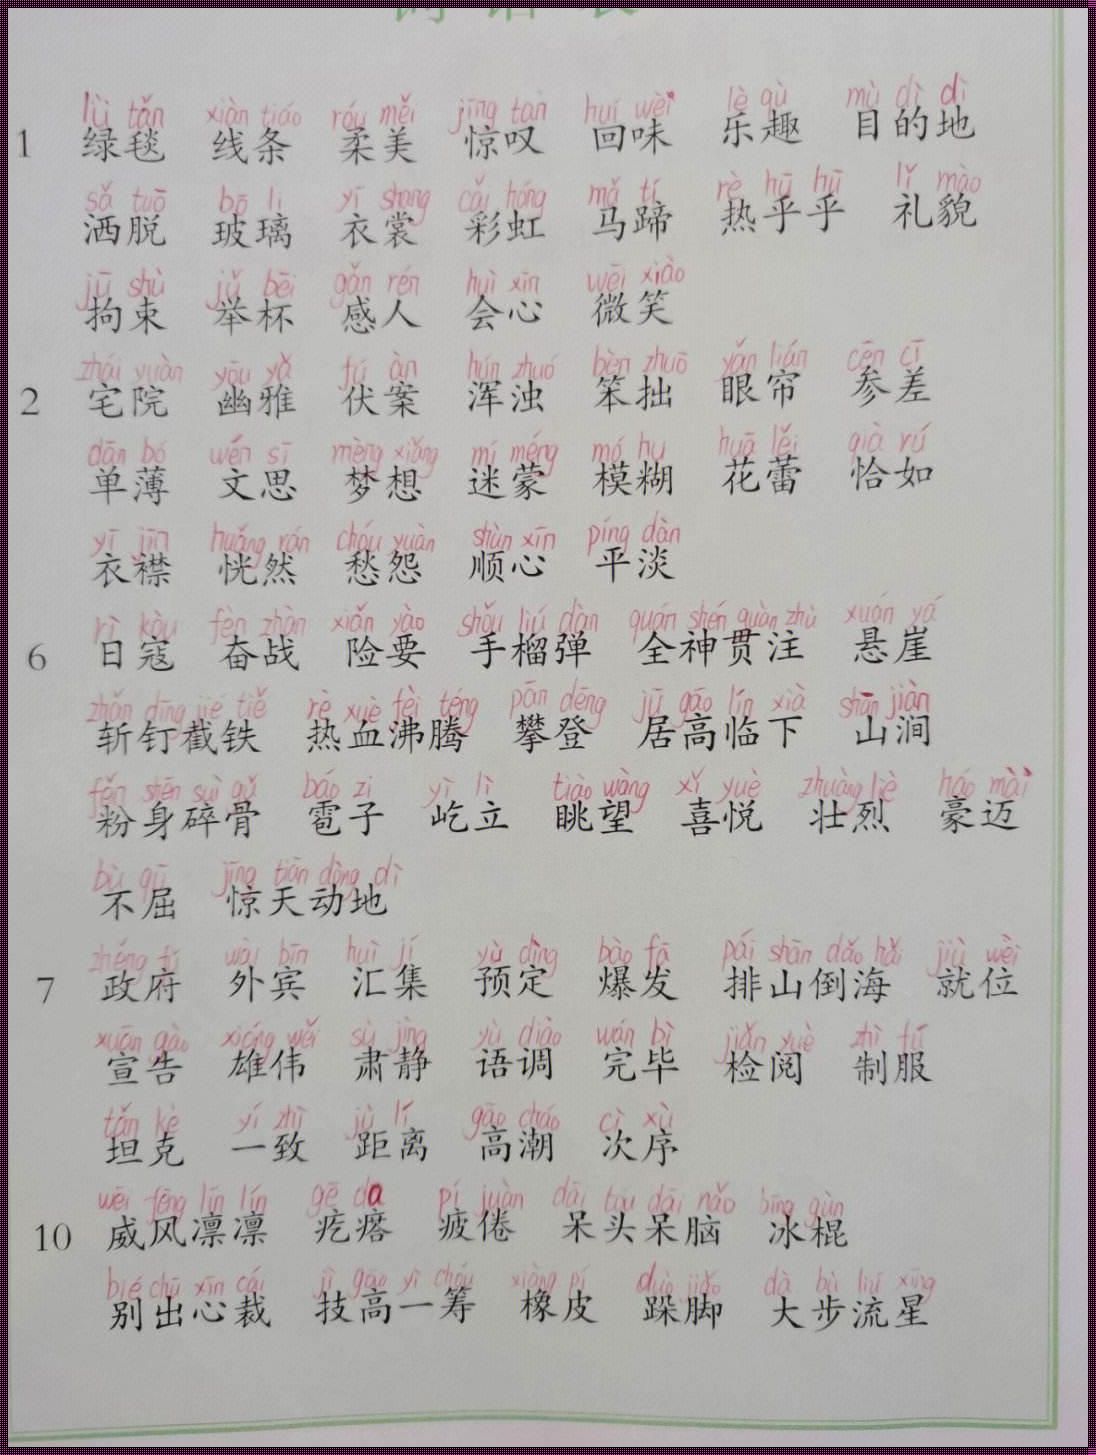 lǜ tǎn xiàn tiáo róu měi jīng tàn huí wèi lè qù mù dì dì
1 绿毯 线条 柔美 惊叹 回味 乐趣 目的地
sǎ tuō bō li yī shang cǎi hóng mǎ tí rè hū hū lǐ mào
洒脱 玻璃 衣裳 彩虹 马蹄 热乎乎 礼貌
jū shù jǔ bēi gǎn rén huì xīn wēi xiào
拘束 举杯 感人 会心 微笑
zhái yuàn yōu yǎ fú àn hún zhuó bèn zhuō yǎn lián cēn cī
2 宅院 幽雅 伏案 浑浊 笨拙 眼帘 参差
dān bó wén sī mèng xiǎng mí méng mó hu huā lěi qià rú
单薄 文思 梦想 迷蒙 模糊 花蕾 恰如
yī jīn huǎng rán chóu yuàn shùn xīn píng dàn
衣襟 恍然 愁怨 顺心 平淡
rì kòu fèn zhàn xiǎn yào shǒu liú dàn quán shén guàn zhù xuán yá
6 日寇 奋战 险要 手榴弹 全神贯注 悬崖
zhǎn dīng jié tiě rè xuè fèi téng pān dēng jū gāo lín xià shān jiàn
斩钉截铁 热血沸腾 攀登 居高临下 山涧
fěn shēn suì gǔ báo zi yì lì tiào wàng xǐ yuè zhuàng liè háo mài
粉身碎骨 雹子 屹立 眺望 喜悦 壮烈 豪迈
bù qū jīng tiān dòng dì
不屈 惊天动地
zhéng fǔ wài bīn huì jí yù dìng bào fā pái shān dǎo hǎi jiù wèi
7 政府 外宾 汇集 预定 爆发 排山倒海 就位
xuān gào xióng wěi sù jìng yǔ diào wán bì jiǎn yuè zhì fú
宣告 雄伟 肃静 语调 完毕 检阅 制服
tǎn kè yí zhì jù lí gāo cháo cì xù
坦克 一致 距离 高潮 次序
wēi fēng lǐn lǐn gē da pí juàn dāi tóu dāi nǎo bīng gùn
10 威风凛凛 疙瘩 疲倦 呆头呆脑 冰棍
bié chū xīn cái jì gāo yì chóu xiàng pí duò jiǎo dà bù liú xīng
别出心裁 技高一筹 橡皮 跺脚 大步流星